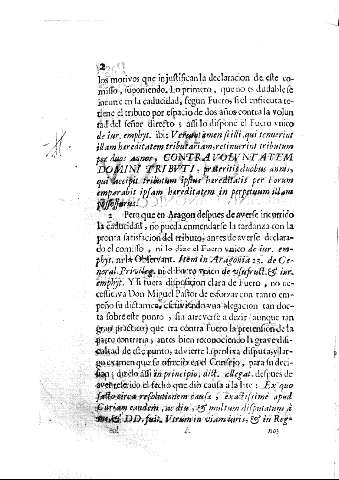 2
los motivos que injustifican la declaracion de este co-
misso, suponiendo. Lo primero, que no es dudable se
incurre en la caducidad, segun Fuero, si el enfiteuta re-
tiene el tributo por espacio de dos años contra la volun
tad del señor directo; assi lo dispone el Fuero vnico
de iur. emphyt. ibi: Verum tamen si illi, qui tenuerint
illam hereditatem tributariam, retinuerint tributum
per duos annos, CONTRA VOLUNTATEM
DOMINI TRIBUTI, præteritis duobus annis,
qui accipit tributum ipsius hereditatis per Forum
emparabit ipsam hereditatem in perpetuum illam
possessurus.
2 Pero que en Aragon despues de averse incurrido
la caducidad, no pueda enmendarse la tardanza con la
pronta satisfacion del tributo, antes de averse declara-
do el comisso, ni lo dize el Fuero vnico de iur. em-
phyt. ni la Observant. Item in Aragonia 22. de Ge-
neral. Privileg. ni el Fuero vnico de usufruct. & iur.
emphyt. Y si fuera disposicion clara de Fuero, no ne-
cessitiva Don Miguel Pastor de esforzar con tanto em-
peño su dictamen, escriviendo una alegacion tan doc-
ta sobre este punto, ni a atreverse a dezir (aunque tan
gran practico) que era contra Fuero la pretension de la
parte contraria; antes bien reconociendo la gravedifi-
cultad de este punto, advierte la prolixa disputa, y lar-
go examen que se ofreciò en el Consejo, para su deci-
sion; diziendo assi in principio, dict. allegat. despues de
aver referido el fecho que diò causa a la lite: Ex quo
facto circa resolutionem causæ, exactissimè apud
Curiam eandem, ac diu, & multum disputatum à
DD. fuit. Verum in viam iuris, & in Reg-
nos